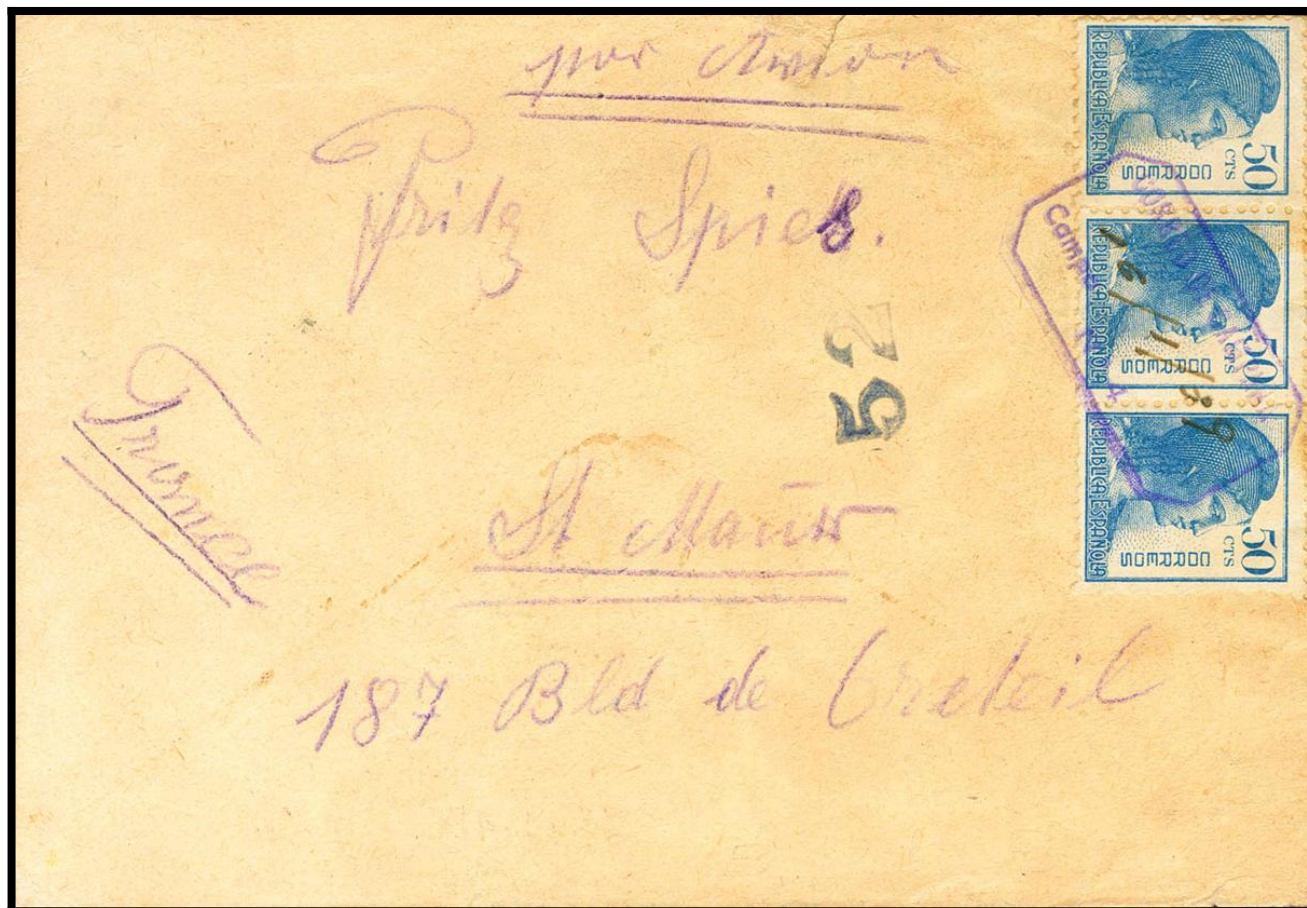 por Avion
Fritz Spieß.
52
France
St Maur
187 Bld de Creteil
REPUBLICA ESPAÑOLA
CORREOS
50 CTS
REPUBLICA ESPAÑOLA
CORREOS
50 CTS
REPUBLICA ESPAÑOLA
CORREOS
50 CTS